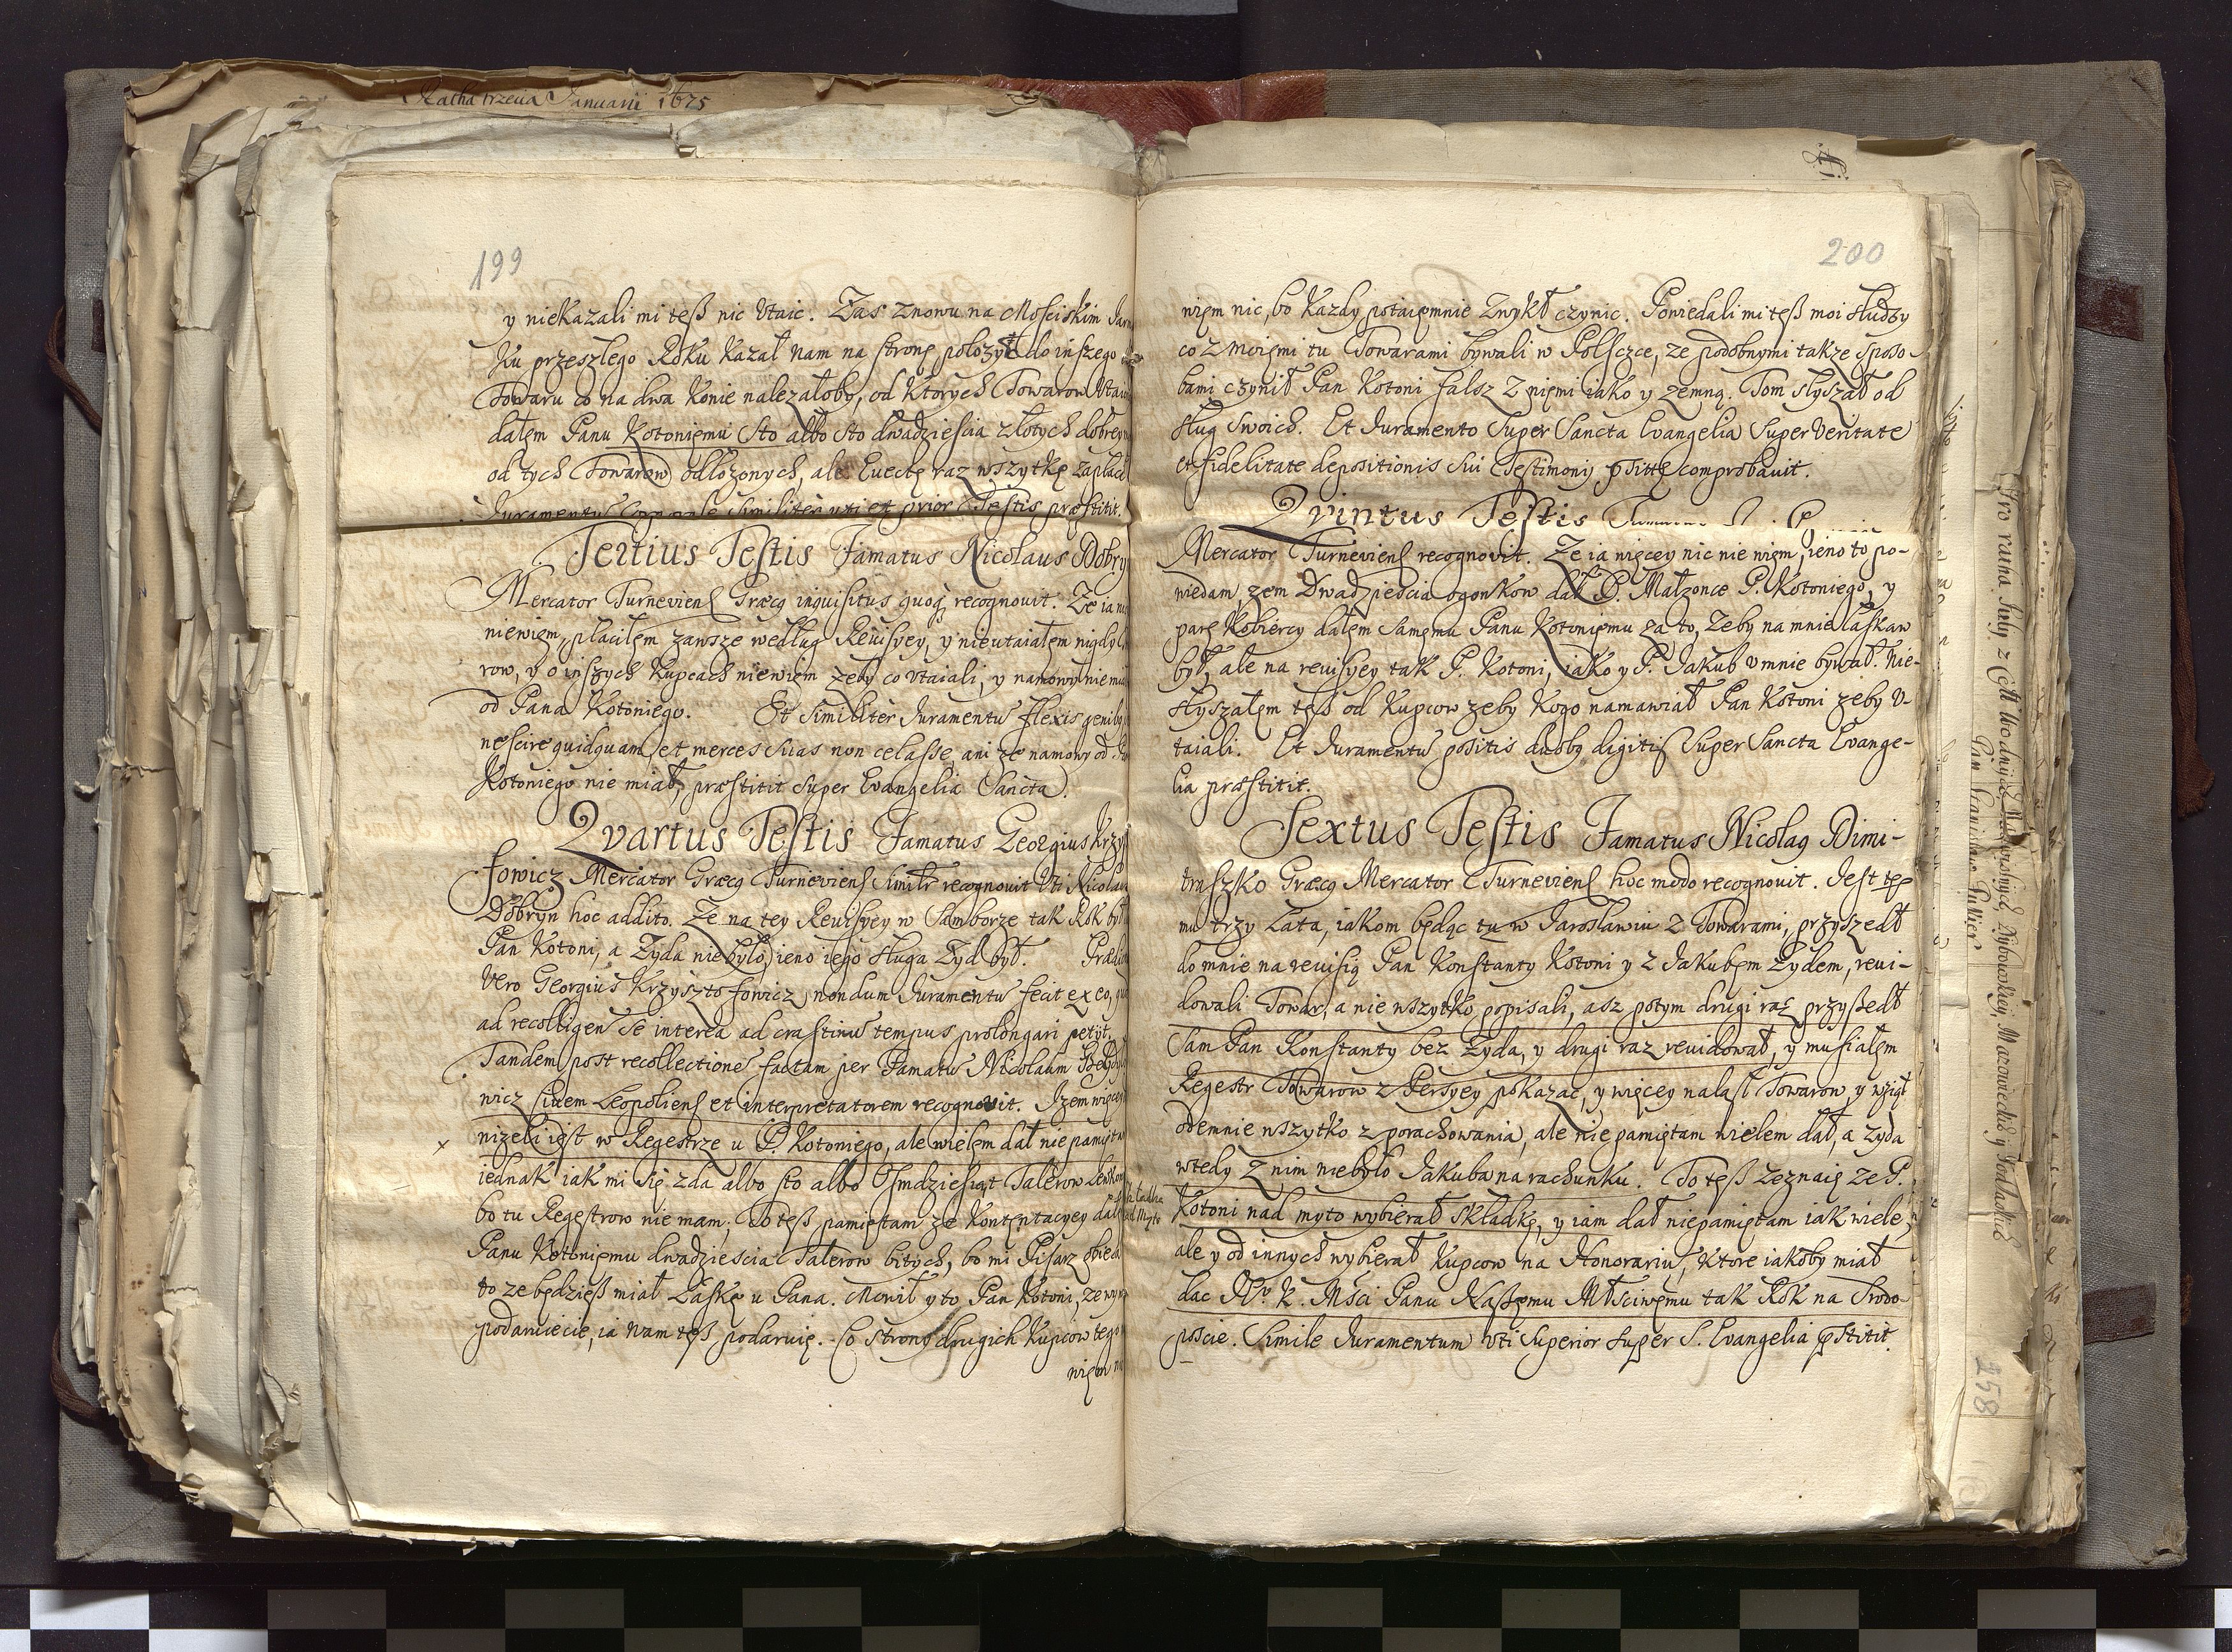 Ratha trzecia Januarii 1675
199
y niekazali mi teß nic Utaic. Zas znowu na Mosciskim
ku przeszlego Roku kazał nam na stronę położyć do inszego
Towaru co na dwa konie nalezałoby, od ktorych Towarow
dałem Panu Kotoniemu sto albo sto dwadziescia złotych
od tych Towarow odłozonych, ale Evectę raz wszytkę
similiter uti et prior Testis præstitit.
Tertius Testis Famatus Nicolaus Dobry
Mercator Turneviens Græcg inquisitus quoq recognovit. Ze ia
niewiem, płaciłem zawsze według Revisyey, y nieutaiałem nigdy
row, y o inszych kupcach niewiem zeby co Utaiali, y namowy niemia
od Pana Kotoniego. Et similiter Juramentu flexis genibg
nescire quidquam et merces suas non celasse, ani ze namowy od
Kotoniego nie miał, præstitit super Evangelia Sancta.
Qvartus Testis Famatus Georgius Krzy
fowicz Mercator Græcg Turneviens similr recognovit Uti Nicolau
Dobryn hoc addito. Ze na tey Revisyey w Samborze tak Rok był
Pan Kotoni, a Zyda niebyło, ieno iego sługa Zyd był.
Vero Georgius Krzysztofowicz nondum Juramentu fecit ex eo,
ad recolligen se interea ad crastinu tempus prolongari petÿt.
Tandem post recollectione factam per Famatu Nicolaum
nicz Civem Leopoliens et interpretatorem recognovit. Izem więcey
x nizeli iest w Regestrze u P. Kotoniego, ale wielem dał nie
iednak iak mi się zda albo sto albo Osmdziesiąt Talerow
bo tu Regestrow nie mam. To teß pamiętam ze Kontentacyey dał
składka
nad myto
Panu Kotoniemu dwadziescia Talerow bitych, bo mi Pisarz obieca
to ze będzieß miał Łaskę u Pana. Mowił y to Pan Kotoni, ze wy
podaruiecie, ia wam teß podaruię. Co strony drugich kupcow tego
wiem
200
wiem nic, bo kazdy potaiemnie zwykł czynic. Powiedali mi teß moi słudzy
co z moiemi tu Towarami bywali w Polszcze, ze podobnymi takze sposo-
bami czynił Pan Kotoni fałsz z niemi iako y zemną. Tom słyszał od
sług swoich. Et Juramento super Sancta Evangelia super Veritate
et fidelitate depositionis sui Testimonij comprobavit.
Qvintus Testis
Mercator Turneviens recognovit. Ze ia więcey nic nie wiem, ieno to po-
wiedam, zem Dwadziescia ogonkow dał P. Małzonce P. Kotoniego, y
parę Kobiercy dałem samemu Panu Kotoniemu za to, zeby na mnie łaskaw
był, ale na revisyey tak P. Kotoni, iako y P. Jakub u mnie bywał. Nie-
słyszałem teß od kupcow zeby kogo namawiał Pan Kotoni zeby U-
taiali. Et Juramentu positis duobg digitis super Sancta Evange-
lia præstitit.
Sextus Testis Famatus Nicolag Dimi-
traszko Græcg Mercator Turneviens hoc modo recognovit. Jest te
mu trzy Lata, iakom będąc tu w Jarosławiu z Towarami, przyszedł
do mnie na revisią Pan Konstanty Kotoni y z Jakubem Zydem, revi-
dowali Towar, a nie wszytko popisali, asz potym drugi raz przyßedł
sam Pan Konstanty bez Zyda, y drugi raz revidował, y musiałem
Regestr Towarow z Persyey pokazac, y więcey nalasł Towarow, y wziął
odemnie wszytko z porachowania, ale nie pamiętam wielem dał, a Zyda
wtedy z nim niebyło Jakuba na rachunku. To teß zeznaię ze P.
Kotoni nad myto wybierał składkę, y iam dał niepamiętam iak wiele,
ale y od innych wybierał kupcow na Honorariu, ktore iakoby miał
dac K. Msci Panu Naßemu Młsciwemu tak Rok na Srodo-
poscie. Simile Juramentum uti superior super S. Evangelia pstitit.
258